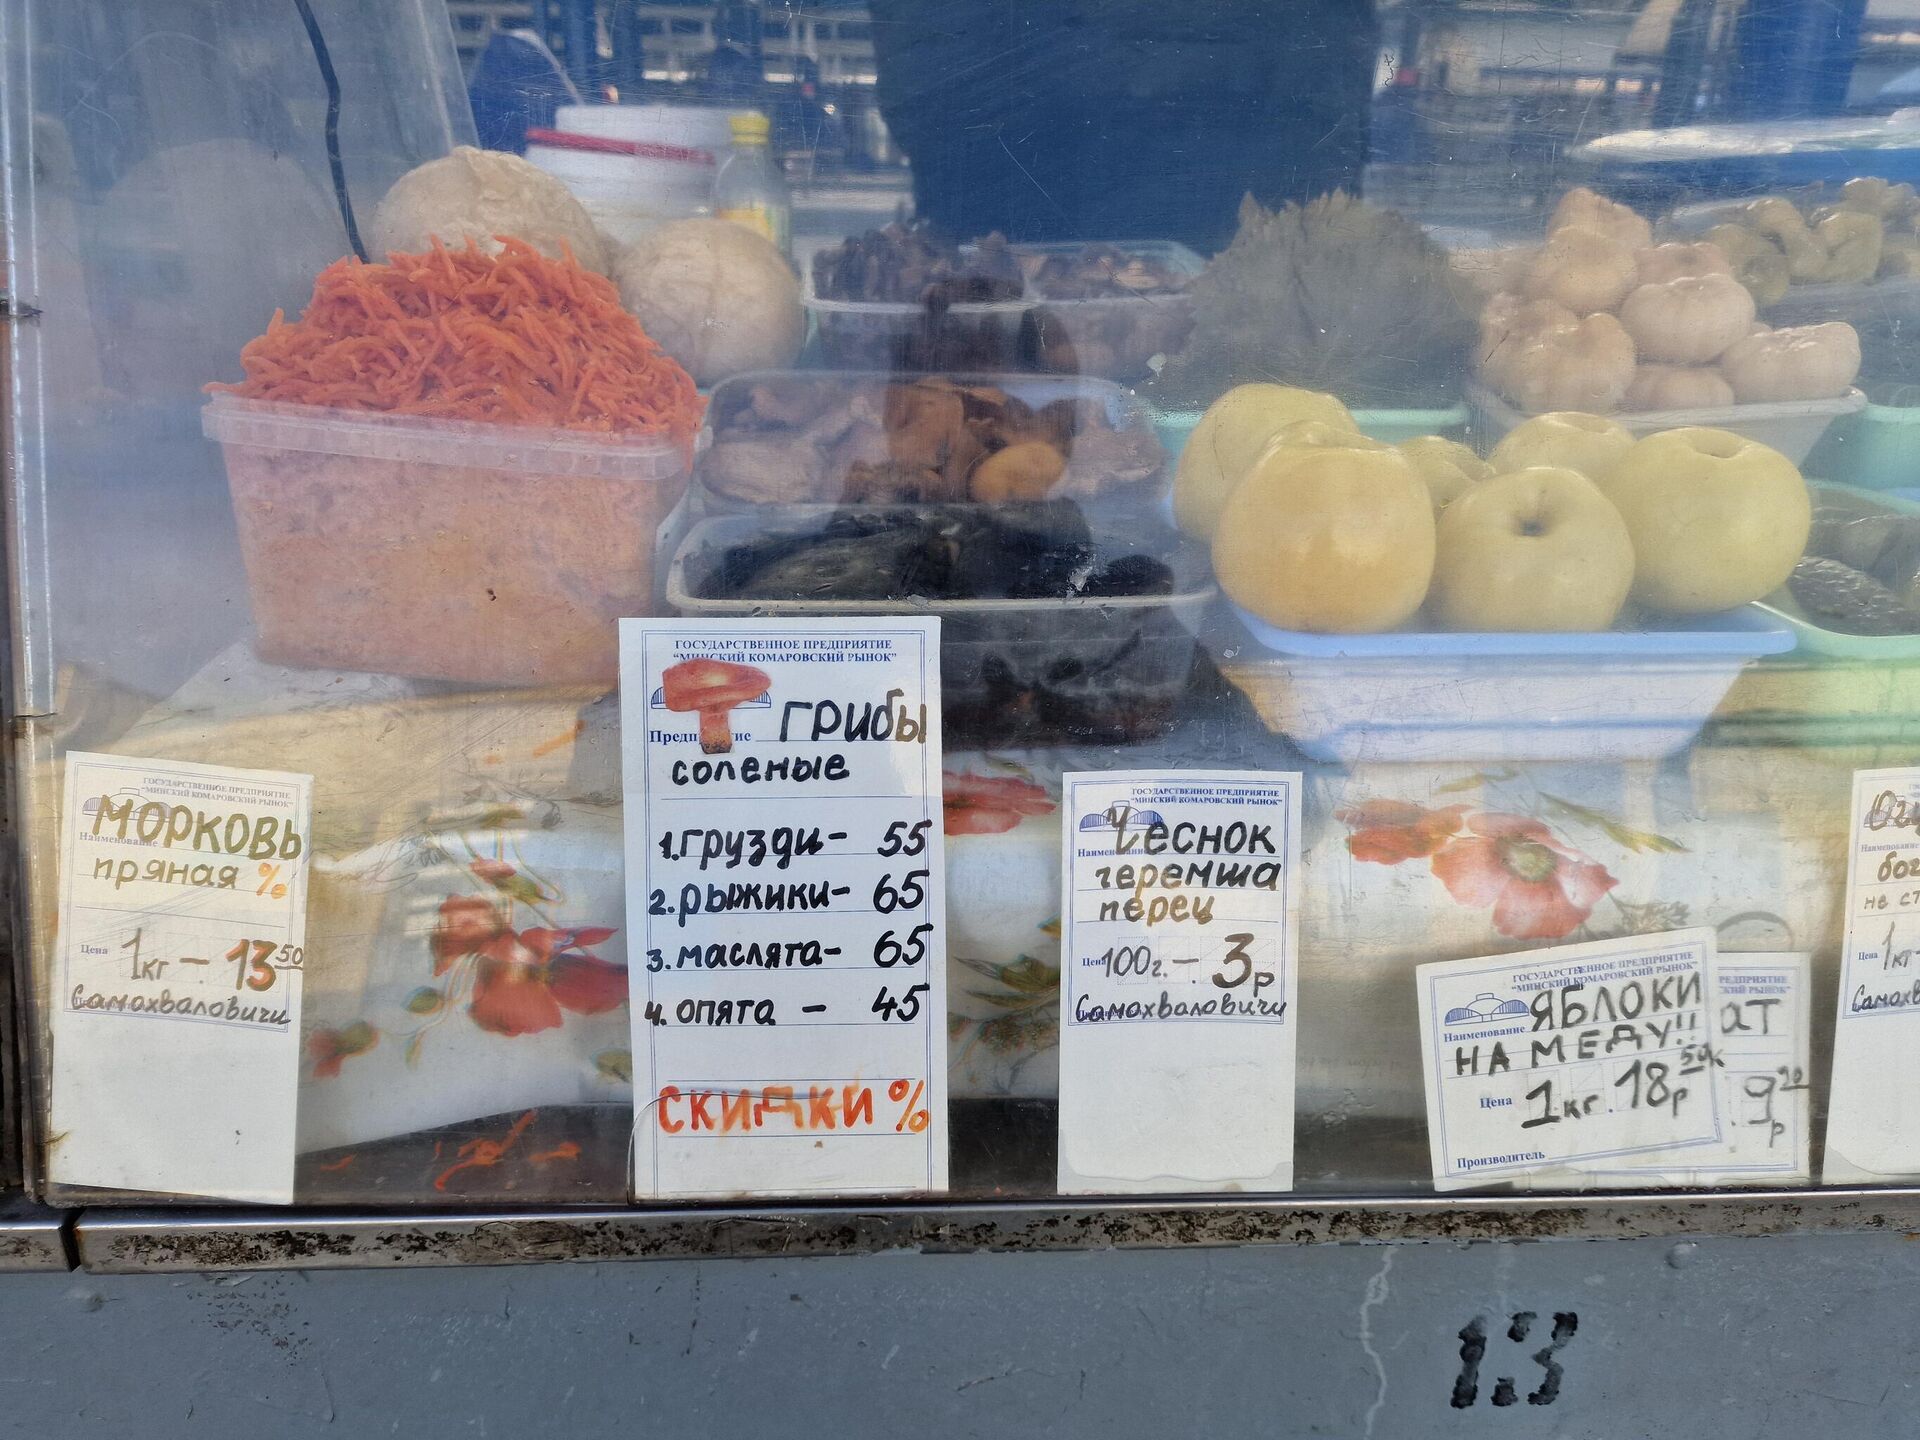 ГОСУДАРСТВЕННОЕ ПРЕДПРИЯТИЕ
"МИНСКИЙ КОМАРОВСКИЙ РЫНОК"
МОРКОВЬ
Наименование
пряная %
Цена 1кг - 13 50
Самохваловичи
ГОСУДАРСТВЕННОЕ ПРЕДПРИЯТИЕ
"МИНСКИЙ КОМАРОВСКИЙ РЫНОК"
грибы
соленые
1. грузди - 55
2. рыжики - 65
3. маслята - 65
4. опята - 45
СКИДКИ %
ГОСУДАРСТВЕННОЕ ПРЕДПРИЯТИЕ
"МИНСКИЙ КОМАРОВСКИЙ РЫНОК"
Чеснок
Наименование
черемша
перец
Цена 100г. - 3р
Самохваловичи
ГОСУДАРСТВЕННОЕ ПРЕДПРИЯТИЕ
"МИНСКИЙ КОМАРОВСКИЙ РЫНОК"
ЯБЛОКИ
Наименование
НА МЕДУ!!
Цена 1кг. 18р 50к
Производитель
9р 20
не ст
1кг-
13